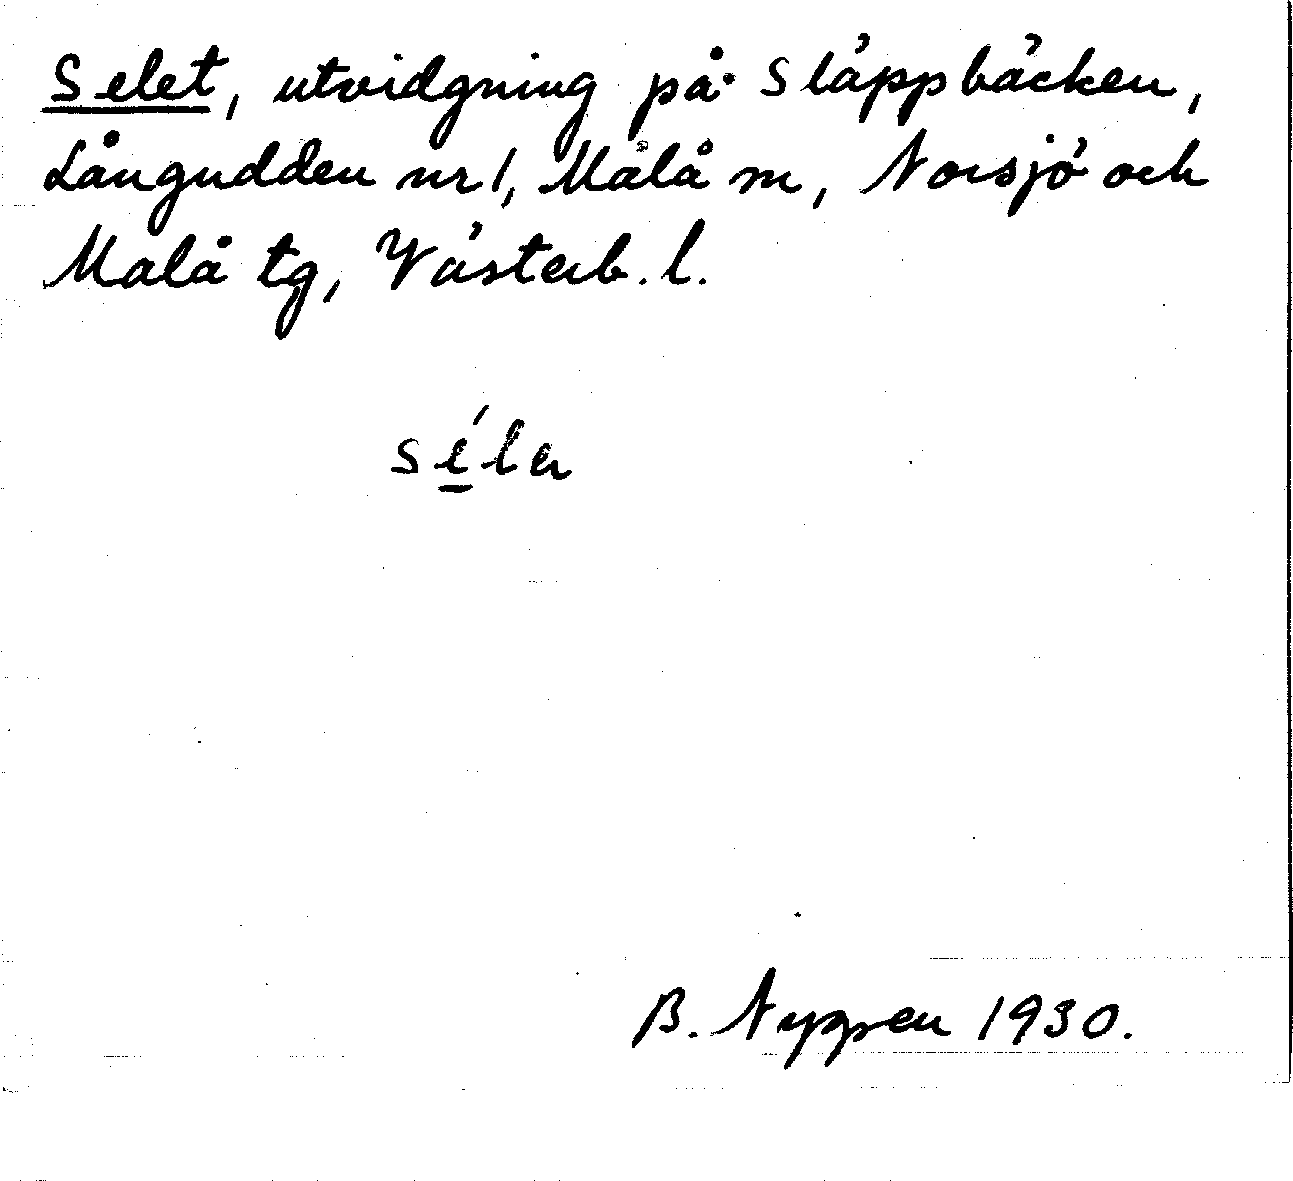 Selet, utvidgning på Släppbäcken,
Långudden nr 1, Malå sn, Norsjö och
Malå tg, Västerb. l.
sélɐ
B. Nygren 1930.